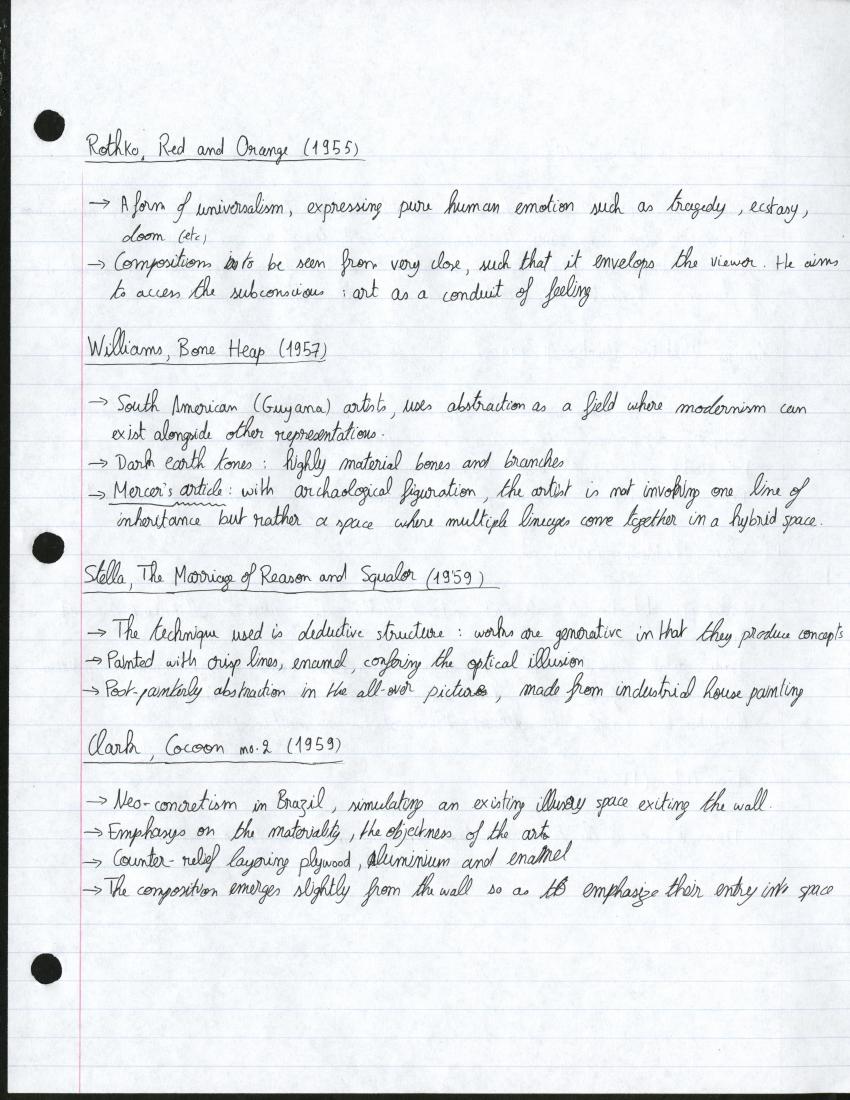 Rothko, Red and Orange (1955)
→ A form of universalism, expressing pure human emotion such as tragedy, ecstasy,
doom (etc)
→ Compositions to be seen from very close, such that it envelops the viewer. He aims
to access the subconscious : art as a conduit of feeling
Williams, Bone Heap (1957)
→ South American (Guyana) artists, uses abstraction as a field where modernism can
exist alongside other representations.
→ Dark earth tones : highly material bones and branches
→ Mercer's article : with archaological figuration, the artist is not invoking one line of
inheritance but rather a space where multiple lineages come together in a hybrid space.
Stella, The Marriage of Reason and Squalor (1959)
→ The technique used is deductive structure : works are generative in that they produce concepts
→ Painted with crisp lines, enamel, confering the optical illusion
→ Post-painterly abstraction in the all-over pictures, made from industrial house painting
Clark, Cocoon no.2 (1959)
→ Neo-concretism in Brazil, simulating an existing illusory space exiting the wall.
→ Emphasys on the materiality, the objectness of the art
→ Counter-relief layering plywood, aluminium and enamel
→ The composition emerges slightly from the wall so as to emphasize their entry into space